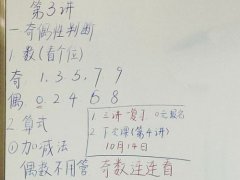 第3讲
一 奇偶性判断
1 数(看个位)
奇 1. 3. 5. 7 9
偶 0 2 4 6 8
2 算式
①加减法
偶数不用管 奇数连连看
1. 三讲 复习 0元报名
2. 下次课(第4讲)
10月14日